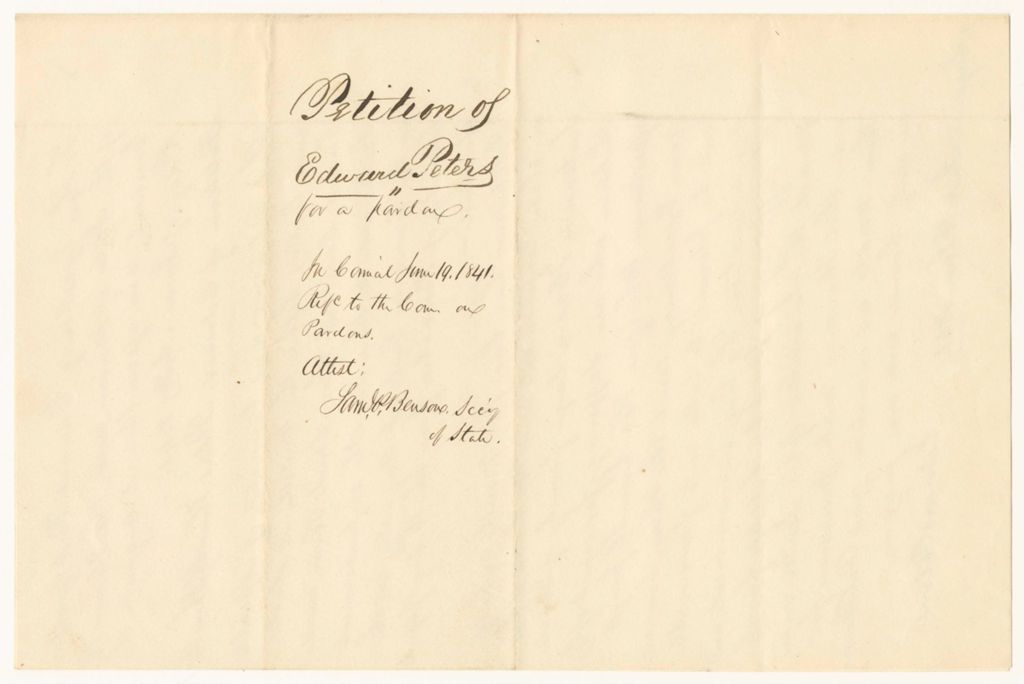 Petition of
Edward Peters
"
for a pardon.
In Council June 19. 1841.
Refd to the Com. on
Pardons.
Attest:
Saml. P. Benson. Sec'y
of State.